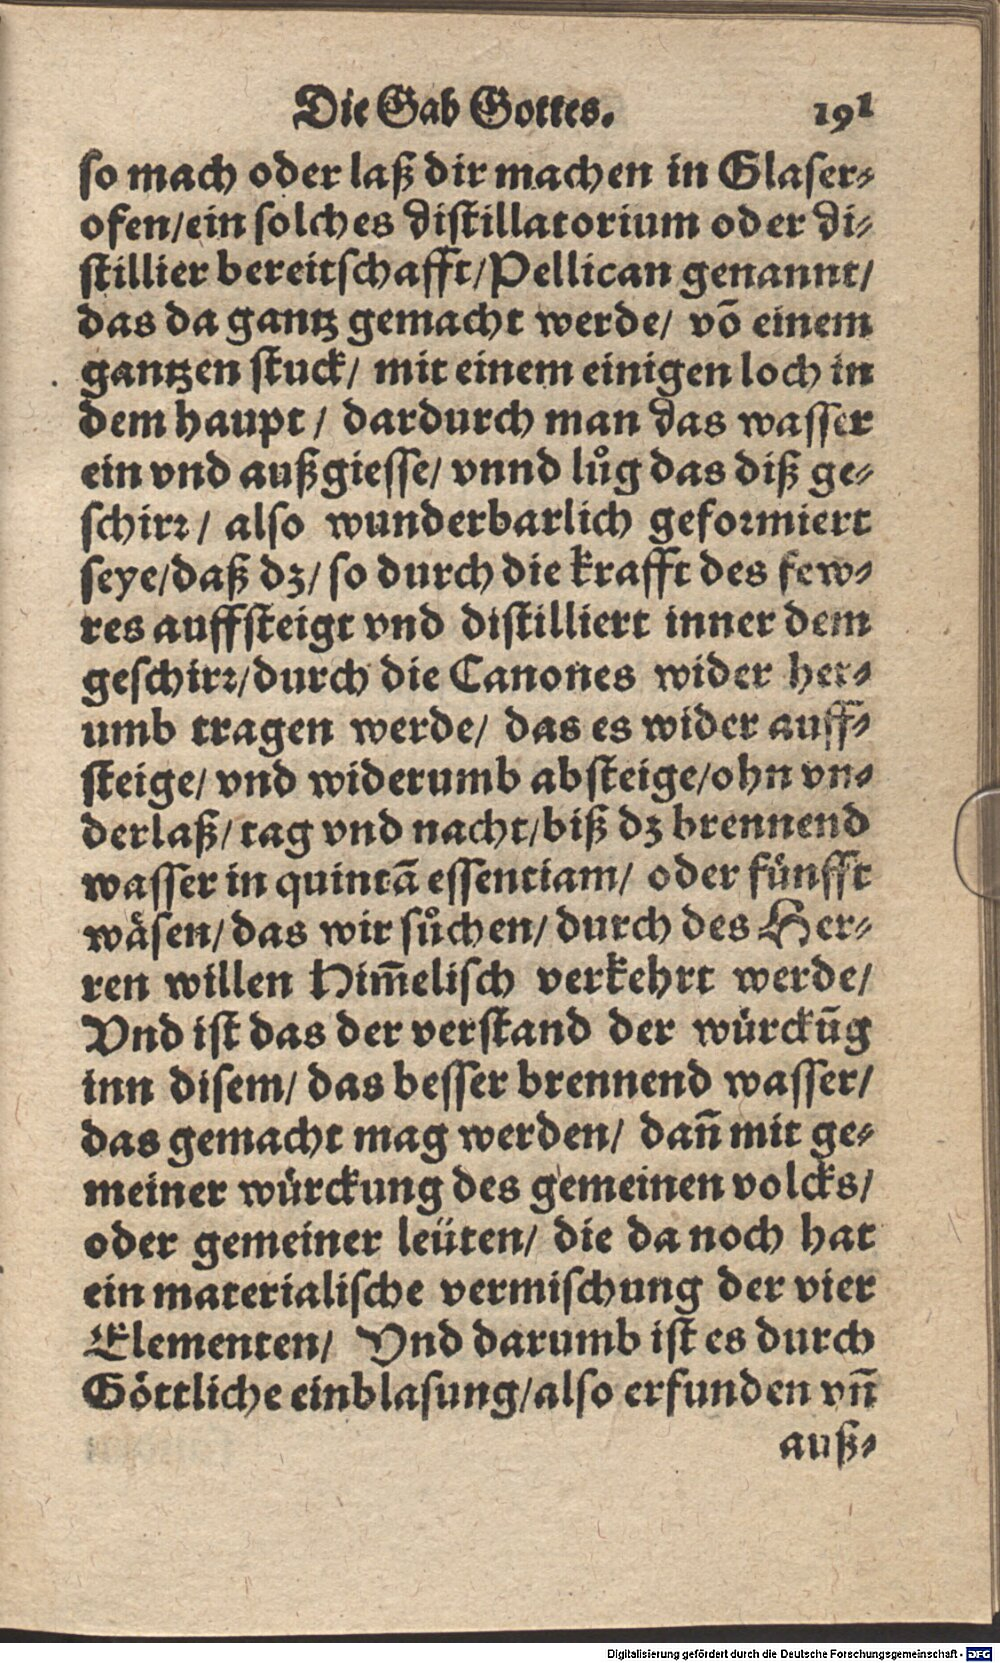 Die Gab Gottes. 191
so mach oder laß dir machen in Glaser⸗
ofen/ein solches distillatorium oder di⸗
stillier bereitschafft/Pellican genannt/
das da gantz gemacht werde/ vō einem
gantzen stuck/ mit einem einigen loch in
dem haupt/ dardurch man das wasser
ein vnd außgiesse/ vnnd lůg das diß ge⸗
schirꝛ/ also wunderbarlich gefoꝛmiert
seye/daß dz/ so durch die krafft des few⸗
res auffsteigt vnd distilliert inner dem
geschirꝛ/durch die Canones wider her⸗
umb tragen werde/ das es wider auff⸗
steige/ vnd widerumb absteige/ohn vn⸗
derlaß/tag vnd nacht/biß dz brennend
wasser in quintā essentiam/ oder fünfft
wäsen/das wir sůchen/durch des Her⸗
ren willen Him̄elisch verkehrt werde/
Vnd ist das der verstand der würckūg
inn disem/das besser brennend wasser/
das gemacht mag werden/ dañ mit ge⸗
meiner würckung des gemeinen volcks/
oder gemeiner leüten/ die da noch hat
ein materialische vermischung der vier
Elementen/ Vnd darumb ist es durch
Göttliche einblasung/also erfunden vñ
auß⸗
Digitalisierung gefördert durch die Deutsche Forschungsgemeinschaft - DFG